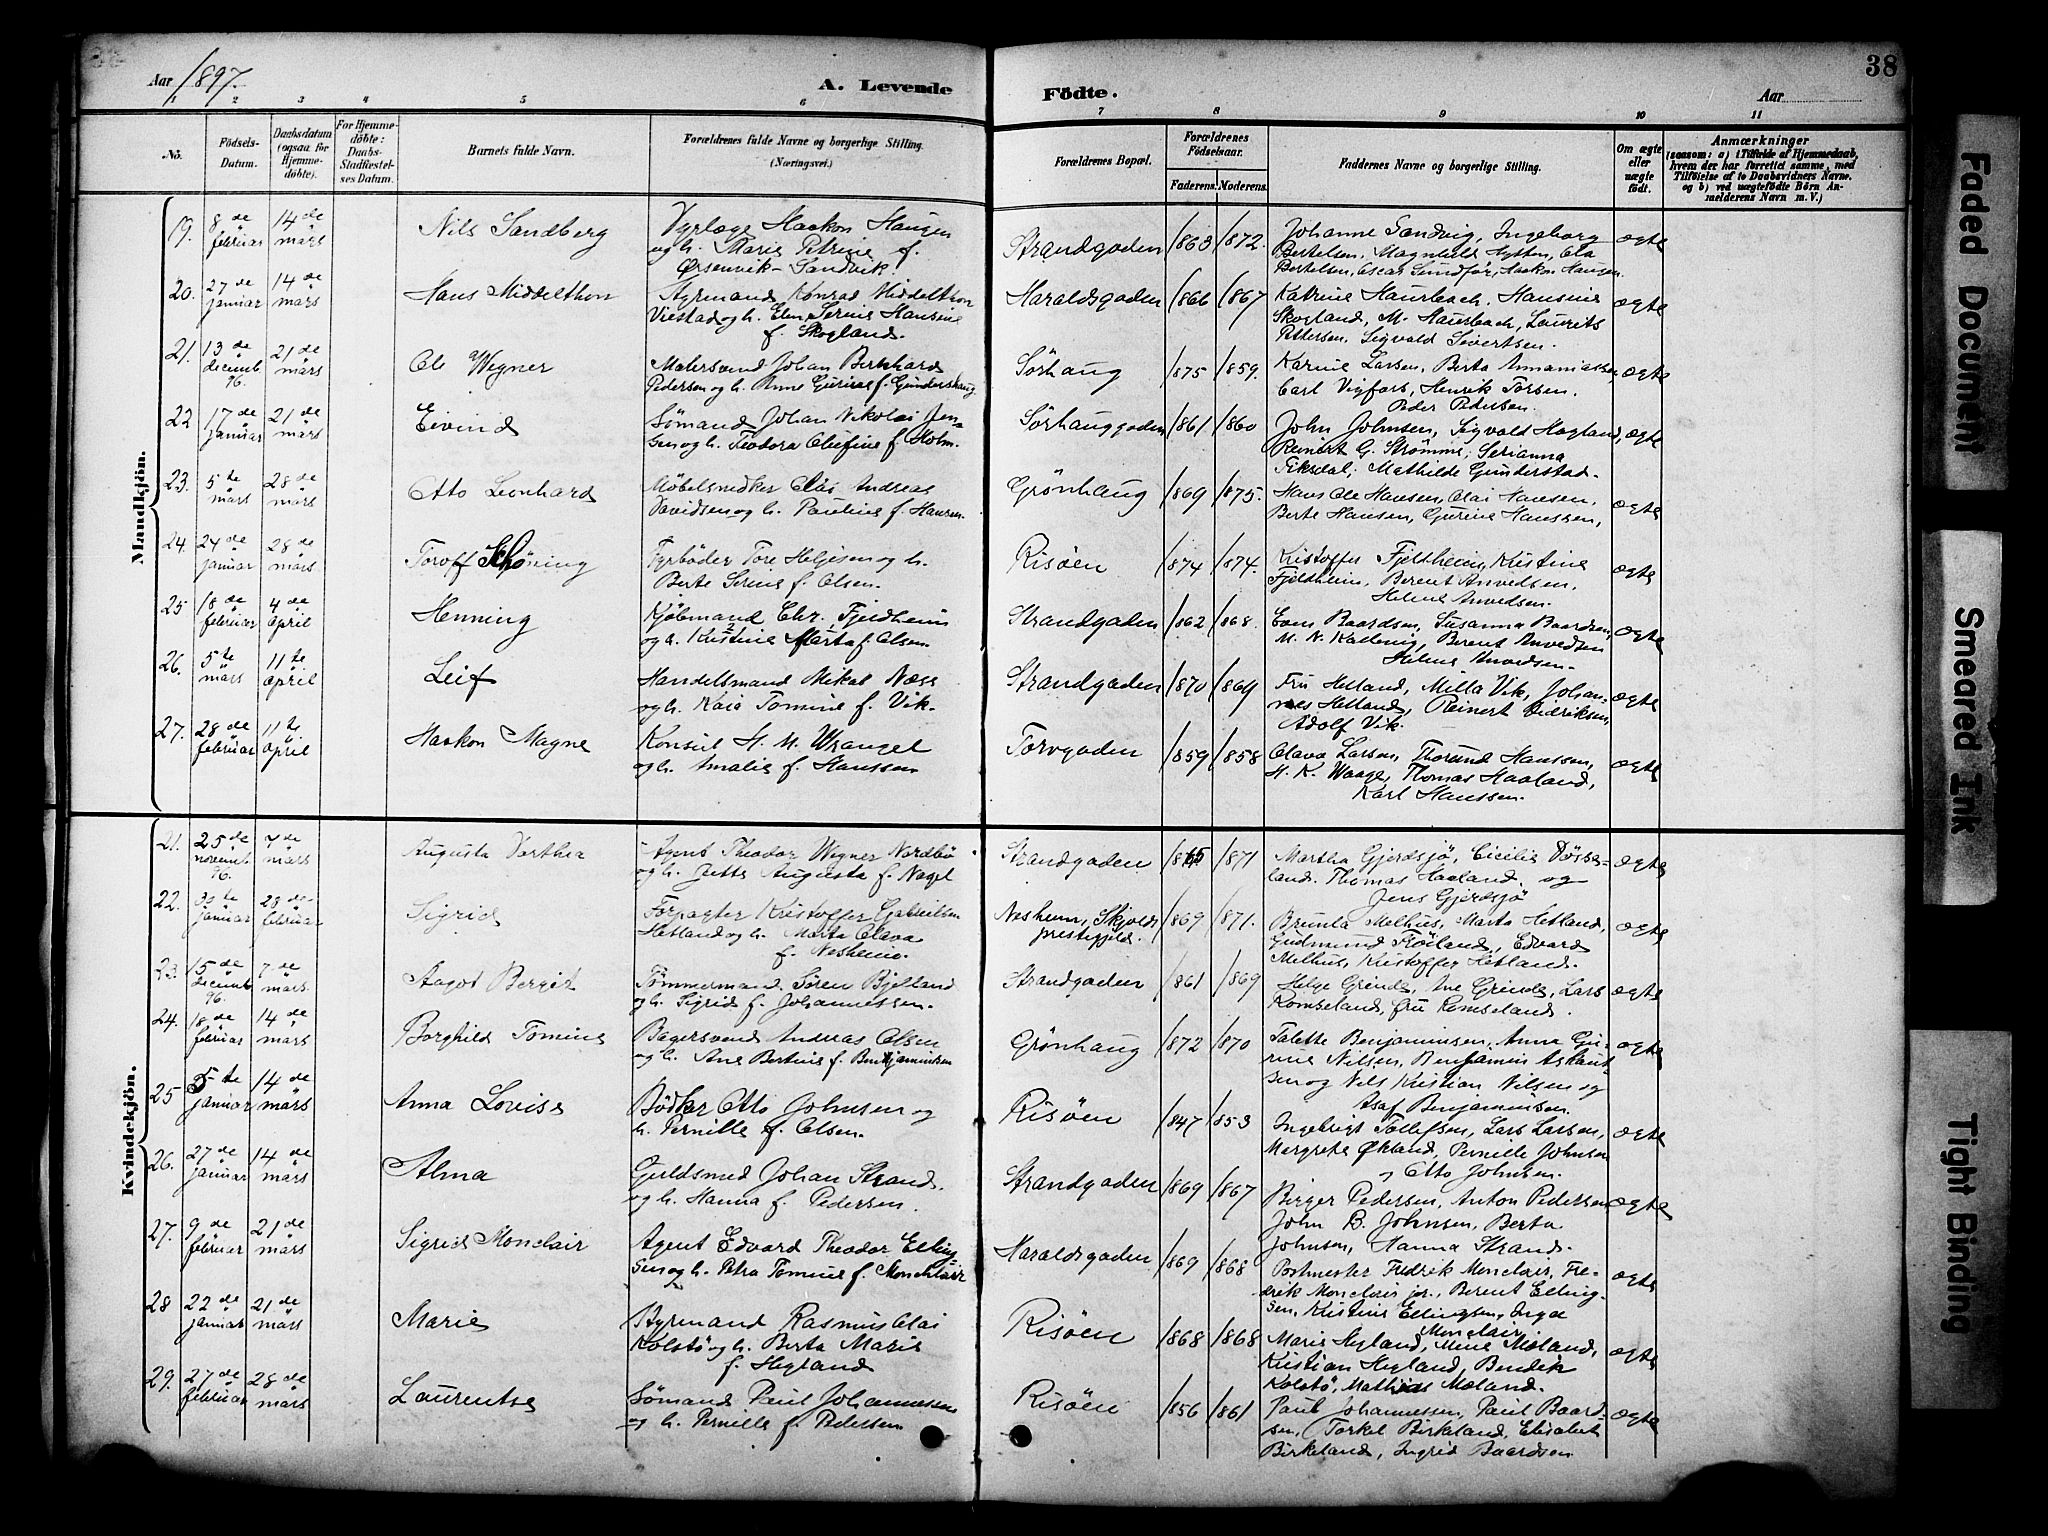 38
Aar 1897.
A. Levende Födte.
Aar
1 2 3 4 5 6 7 8 9 10 11
No.
Födsels-Datum.
Daabsdatum (ogsaa for Hjemmedöbte).
For Hjemmedöbte: Daabs-Stadfæstelses Datum.
Barnets fulde Navn.
Forældrenes fulde Navne og borgerlige Stilling. (Næringsvei.)
Forældrenes Bopæl.
Forældrenes Födselsaar.
Faderens. Moderens.
Faddernes Navne og borgerlige Stilling.
Om ægte eller uægte födt.
Anmærkninger
(saasom: a) i Tilfælde af Hjemmedaab, hvem der har forrettet samme, med Tilföielse af to Daabsvidners Navne. og b) ved uægtefödte Börn Anmelderens Navn m. V.)
Mandkjön.
19. 8de februar 14de märs Nils Sandberg Dyrlæge Haakon Haugen
og h. Marie Petrine f.
Ørsenvik-Sandvik. Strandgaden 1863 1872. Johanne Sandvig, Ingeborg
Bertelsen, Magnhild Hytten, Ola
Bertelsen, Oscar Sundför, Haakon Hausen. ægte
20. 27de januar 14de märs Hans Middelthon Styrmand Konrad Middelthon
Viestad og h. Elen Serine Hansine
f. Skogland. Haraldsgaden 1866 1867 Katrine Haurbach, Hansine
Skogland, M. Haurbach, Laurits
Pettersen, Sigvald Sivertsen. ægte
21. 13de decemb 96. 21de märs Ole Wegner Malersvend Johan Bernhard
Pedersen og h. Anne Gurine f. Gundershaug Sörhaug 1875 1859. Karine Larsen, Berta Annaniassen,
Carl Vigfors, Henrik Torsen.
Peder Pedersen. ægte
22 17de januar 21de märs Eivind Sömand Johan Nikolai Jen-
sen og h. Teodora Olefine f. Holm. Sörhauggaden 1861 1860 John Johnsen, Sigvald Hogland,
Reinert G. Strömme, Serianna
Fiksdal, Mathilde Gunderstad. ægte
23. 5te märs 28de märs Otto Leonhard Möbelsnedker Olai Andreas
Davidsen og h. Pauline f. Hansen. Grönhaug 1869 1875. Hans Ole Hansen, Olai Hansen,
Berte Hansen, Gurine Hanssen, ægte
24. 24de januar 28de märs Toroff Schöning Fyrböder Tore Helgesen og h.
Berte Serine f. Olsen. Risöen 1874 1874. Kristoffer Fjeldheim, Kristine
Fjeldheim, Berent Anvedsen,
Helene Anvedsen. ægte
25 18de februar 4de april Henning Kjöbmand Chr. Fjeldheim
og h. Kristine Marta f. Olsen. Strandgaden 1862 1868. Even Baardsen, Susanna Baardsen,
M. N. Kallevig, Berent Anvedsen
Helene Anvedsen. ægte
26. 5te märs 11te april Leif Handelsmand Mikal Næss
og h. Kaia Tomine f. Vik. Strandgaden 1870 1869 Fru Helland, Milla Vik, Johan-
nes Helland, Reinert Didriksen,
Adolf Vik. ægte
27. 28de februar 11te april Haakon Magne Konsul H. M. Wrangel
og h. Amalie f. Hanssen Torvgaden 1859 1858 Olava Larsen, Thorund Hanssen,
H. K. Waage, Thomas Haaland,
Karl Hanssen. ægte
Kvindekjön.
21. 25de novemb. 96. 7de märs Augusta Dorthea Agent Theodor Wegner Nordbö
og h. Jette Augusta f. Nagel Strandgaden 1865 1871 Martha Gjerdsjö, Cecilie Dösse-
land. Thomas Haaland og
Jens Gjerdsjö ægte
22. januar 28de februar Sigrid Forpagter Kristoffer Gabrielsen
Hetland og h. Marta Olava
f. Nesheim. Nesheim, Skjolds
prestegjeld. 1869 1871. Brunla Melhus, Marta Hetland,
Gudmund Flöiland, Edvard
Melhus, Kristoffer Hetland. ægte
23. 15de decemb 96. 7de märs Aagot Bergit Tömmermand Sören Bjelland
og h. Sigrid f. Johannessen. Strandgaden 1861 1869 Helge Grinde, Ane Grinde, Lars
Romseland, fru Romseland. ægte
24. 18de februar 14de märs Borghild Tomine Bagersvend Andreas Olsen
og h. Ane Bertine f. Benjaminsen Grönhaug 1872 1870 Talette Benjaminsen, Anne Gu-
rine Nilsen, Benjamin Aslaut-
sen og Nils Kristian Nilsen og
Asaf Benjaminsen. ægte
25 5te januar 14de märs Anna Lovise Bödker Otto Johnsen og
h. Pernille f. Olsen. Risöen 1847 1853 Ingebrigt Tollefsen, Lars Larsen,
Margrete Økland, Pernille Johnsen
, Otto Johnsen. ægte
26. 27de januar 14de märs Alma Guldsmed Johan Strand.
og h. Hanna f. Pedersen. Strandgaden 1869 1867 Birger Pedersen, Anton Pedersen
John B. Johnsen, Berta
Johnsen, Hanna Strand. ægte
27. 9de februar 21de märs Sigrid Monclair Agent Edvard Theodor Elling-
sen og h. Petra Tomine f. Monclair Haraldsgaden 1869 1868 Postmester Fredrik Monclair, Fre-
drik Monclair jr., Berent Elling-
sen, Kristine Ellingsen, Inga
Monclair ægte
28 22de januar 21de märs Marie Styrmand Rasmus Olai
Kolstö og h. Berta Marie
f. Hegland Risöen 1868 1868 Marie Hegland, Mine Moland,
Kristian Hegland, Bendik
Kolstö, Mathias Moland. ægte
29. 27de februar 28de märs Laurentse Sömand Paul Johannessen
og h. Pernille f. Pedersen Risöen 1856 1861 Paul Johannessen, Paul Baard-
sen, Torkel Birkeland, Elisabet
Birkeland, Ingrid Baardsen ægte
Faded Document
Smeared Ink
Tight Binding